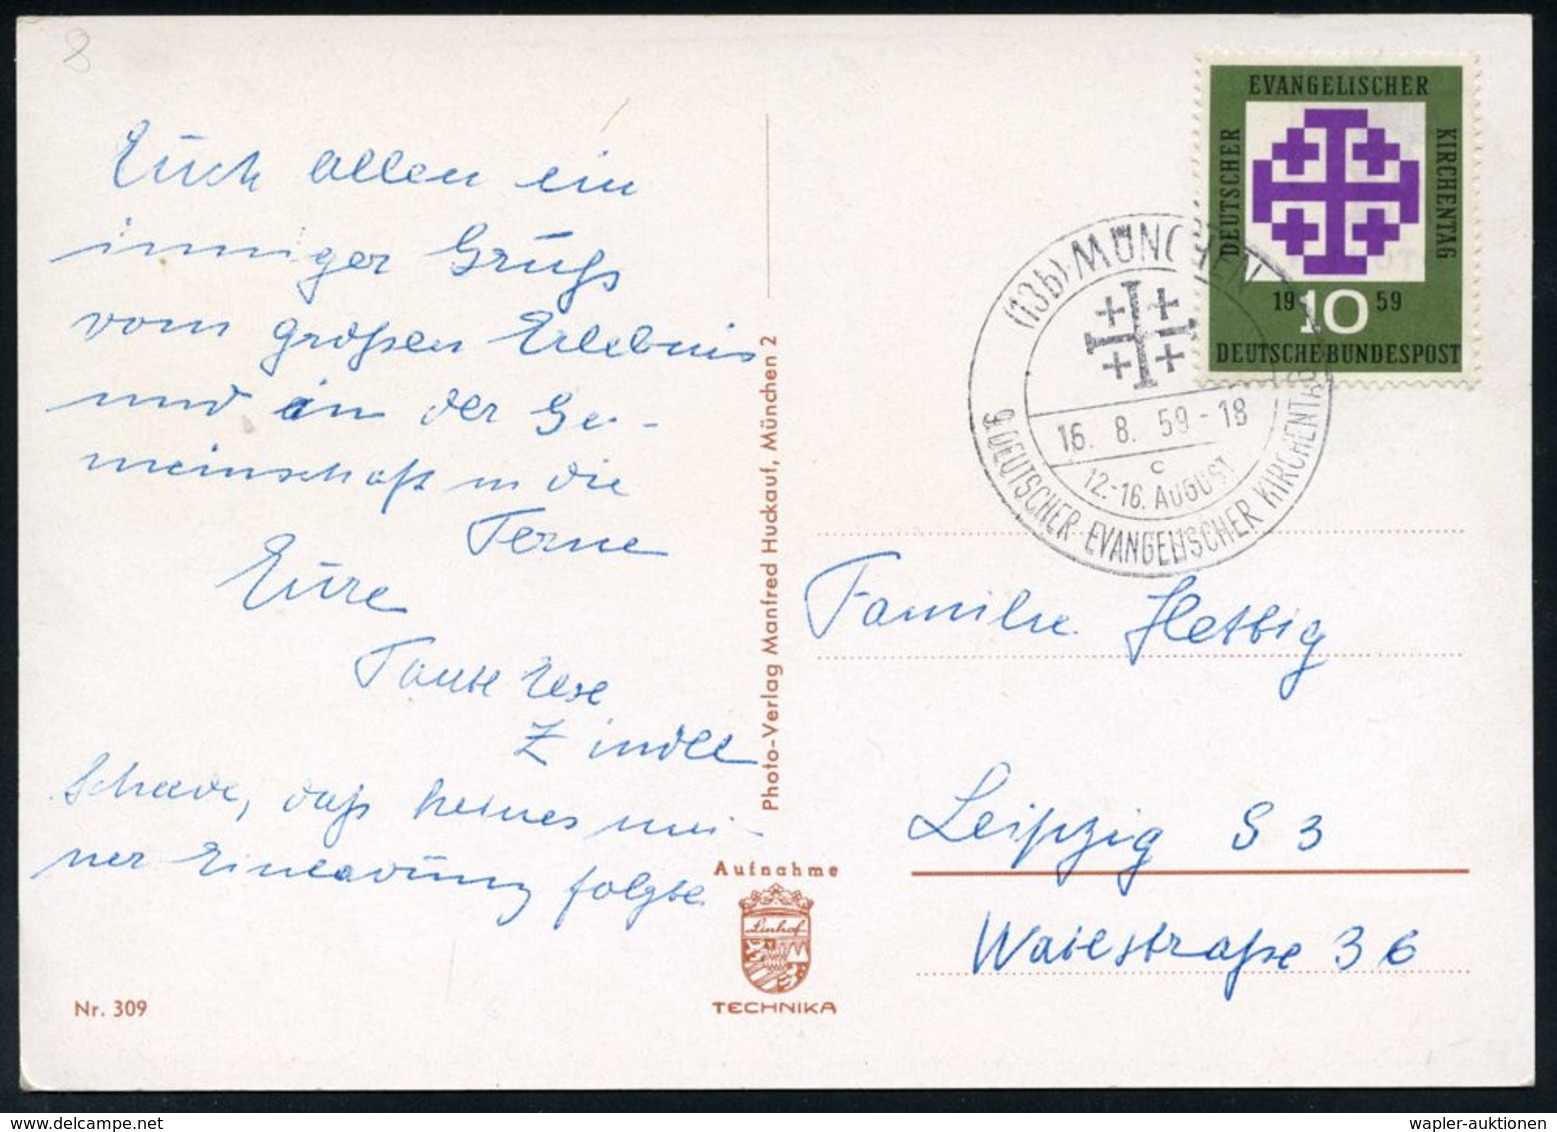 8
Euch allen ein
inniger Gruß
vom großen Erlebnis
und in der Ge-
meinschaft in die
Ferne
Eure
Tante Rese
Zindel
Schade, daß keines mei-
ner Einladung folgte.
Nr. 309
Photo-Verlag Manfred Huckauf, München 2
Aufnahme
Linhof
TECHNIKA
DEUTSCHER EVANGELISCHER KIRCHENTAG
19 10 59
DEUTSCHE BUNDESPOST
(13b) MÜNCHEN
16. 8. 59-18
c
12.-16. AUGUST
9. DEUTSCHER EVANGELISCHER KIRCHENTAG
Familie Helbig
Leipzig S 3
straße 36
wapler-auktionen